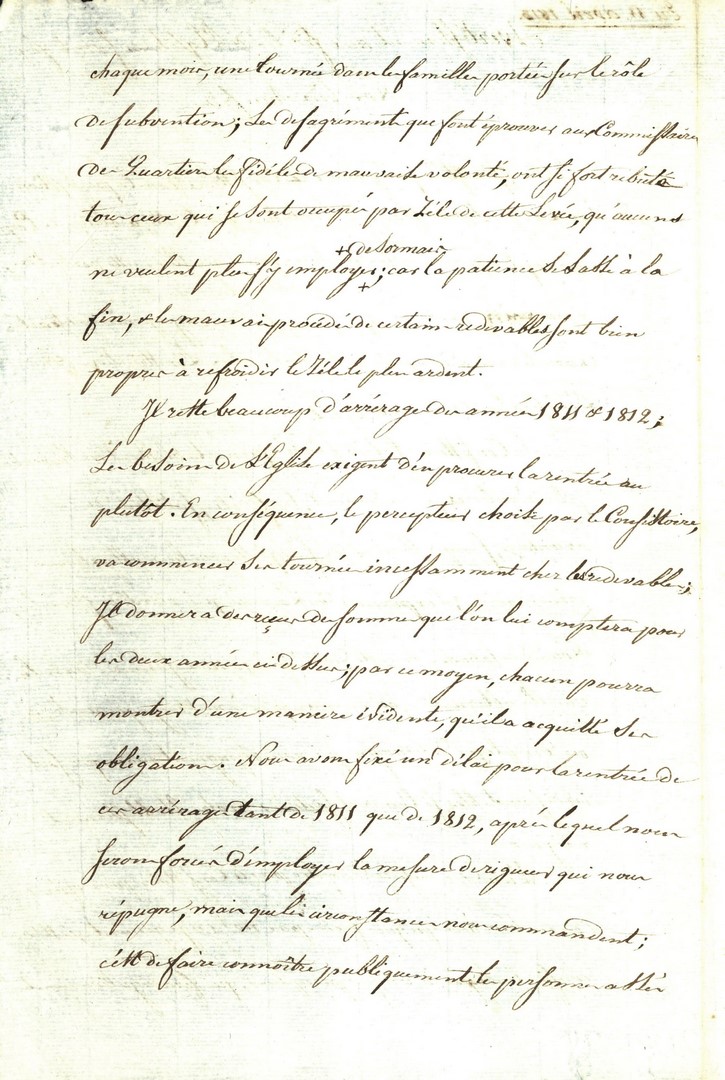 Du 11 avril 1813.
chaque mois, une tournée dans les familles portées sur le rôle
de subvention; Les desagrémens que font éprouver aux Commissaires
de Quartier les fidéles de mauvaise volonté, ont si fort rebuté
tous ceux qui se sont occupés par Zèle de cette Levée, qu'aucuns
+ desormais
ne veulent plus s'y employer; car la patience se lasse à la
+
fin, & les mauvais procédés de certains redevables sont bien
propres à refroidir le Zéle le plus ardent.
Il reste beaucoup d'arrérages des années 1811 & 1812;
Les besoins de l'Eglise exigent d'en procurer la rentrée au
plutôt. En conséquence, le percepteur choisi par le Consistoire,
va commencer ses tournées incessamment chez les redevables;
Il donnera des reçus des sommes que l'on lui comptera pour
les deux années ci dessus; par ce moyen, chacun pourra
montrer d'une manière évidente, qu'il a acquitté ses
obligations. Nous avons fixé un délai pour la rentrée de
ces arrérages tant de 1811 que de 1812, après lequel nous
serons forcés d'employer la mesure de rigueur qui nous
répugne, mais que les circonstances nous commandent;
c'est de faire connoître publiquement les personnes assés